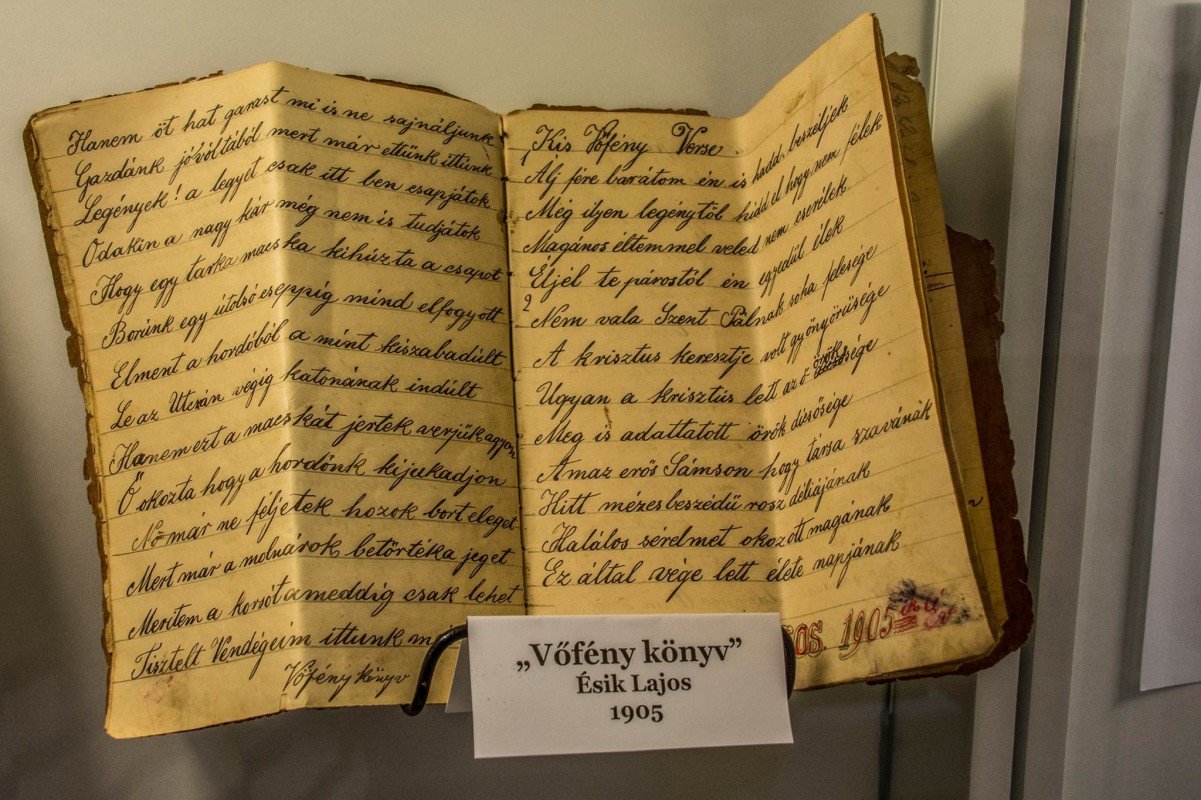 Hanem öt hat garast mi is ne sajnáljunk
Gazdánk jóvóltából mert már ettünk ittúnk
Legények! a legyet csak itt ben csapjátok
Odakin a nagy kár még nem is tudjátok
Hogy egy tarka macska kihúzta a csapot
Borúnk egy útolsó cseppig mind elfogyott
Elment a hordóból a mint kiszabadúlt
Le az Utczán végig katonának indúlt
Hanem ezt a macskát jertek verjük agyon
Ő okozta hogy a hordónk kijukadjon
No már ne féljetek hozok bort eleget
Mert már a molnárok betörték a jeget
Meritem a korsót a meddig csak lehet
Tisztelt Vendégeim ittunk
Vőfény könyv
Kis Vőfény Verse
1 Álj fére barátom én is hadd, beszéljek
Még ilyen legénytöl hidd el hogy nem félek
Magános éltemmel veled nem cserélek
Éljél te párostól én egyedül élek
2 Nem vala Szent Pálnak soha felesége
A krisztus keresztje volt gyönyörüsége
Ugyan a krisztús lett az ő
Meg is adattatott örök dicsősége
Amaz erős Sámson hogy társa szavának
Hitt mézesbeszédű rosz déliájának
Halálos sérelmet okozott magának
Ez által vége lett élete napjának
1905
„Vőfény könyv”
Ésik Lajos
1905